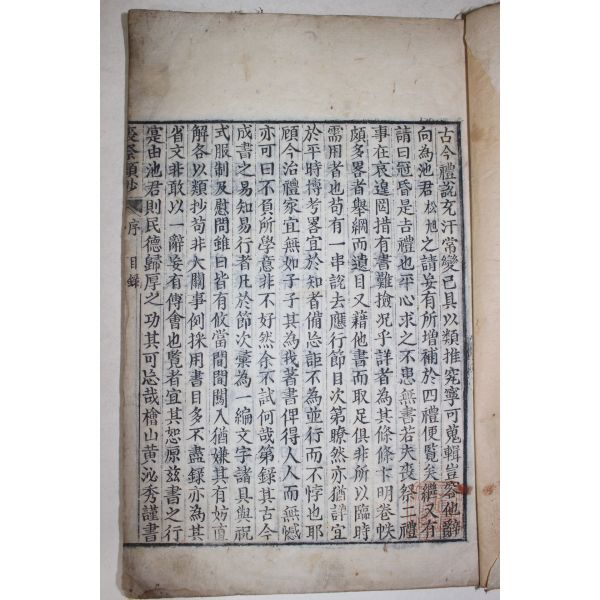 古今禮說充汗常變已具以類推究寧可蒐輯豈容他辭
向為池君松旭之請妄有所增補於四禮便覽矣繼又有
請曰冠昏是吉禮也平心求之不患無書若夫喪祭二禮
事在哀遑罔措有書難撿况乎詳者為其條條卞明卷帙
頗多畧者舉綱而遺目又藉他書而取足俱非所以臨時
需用者也苟有一串說去應行節目次第瞭然亦猶詳宜
於平時摶考畧宜於知者備忘詎不為並行而不悖也耶
顧今治禮家宜無如子子其為我著書俾得人人而無憾
亦可曰不負所學意非不好然余不試何哉第錄其古今
成書之易知易行者凡於節次彙為一編文字諸具與祝
式服制及慰問雖曰皆有攸當間間闖入猶嫌其有妨直
解各以類抄苟非大關事例採用書目多不盡錄亦為其
省文非敢以一辭妄有傳會也覽者宜其恕原茲書之行
寔由池君則民德歸厚之功其可忘哉檜山黃泌秀謹書
喪祭類抄 序 目錄